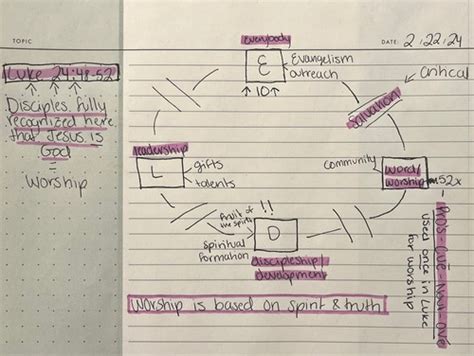 TOPIC
DATE: 2/22/24
Luke 24:48-52
Disciples fully
recognized here
that Jesus is
God
Worship
everybody
E
Evangelism
outreach
↑ 10 ↑
critical
Salvation
leadership
L
gifts
talents
community
word/
worship
52x
Pros-cue-nay-ove
used once in Luke
for worship
!!
fruit of
the spirit
D
spiritual
formation
discipleship/
development
Worship is based on spirit & truth